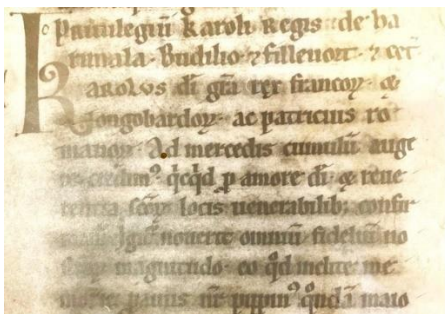 Priuilegiū karoli Regis de ba
rinala. Budilio ⁊ fillenort ⁊ cet̄
KAROLVS di gr̄a rex francoꝝ &
longobardoꝝ. ac patricius ro
manoꝝ. Ad mercedis cumulū auge
re credimꝰ q̇cq̇d ꝓ amore di & reue
rentia scōꝝ locis uenerabilib; confir
Igit̄ nouerit omniū fideliū no
magnitudo. eo qd inclite me
morie patris nr̄i pippinꝰ q̄ndā maio